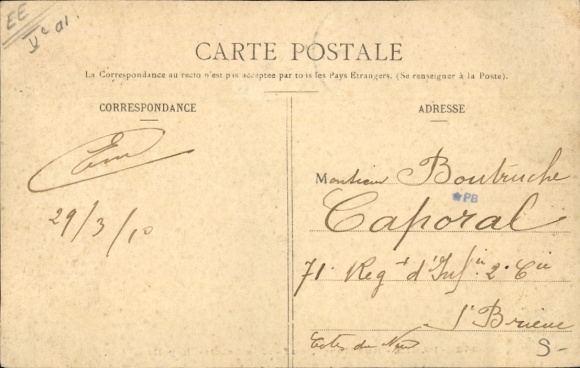 EE
CARTE POSTALE
La Correspondance au recto n'est pas acceptée par tous les Pays Etrangers. (Se renseigner à la Poste).
CORRESPONDANCE
ADRESSE
29/3/10
Monsieur Boutruche
PB
Caporal
71. Regt d'Infie 2e Cie
St Brieuc
Cotes du Nord